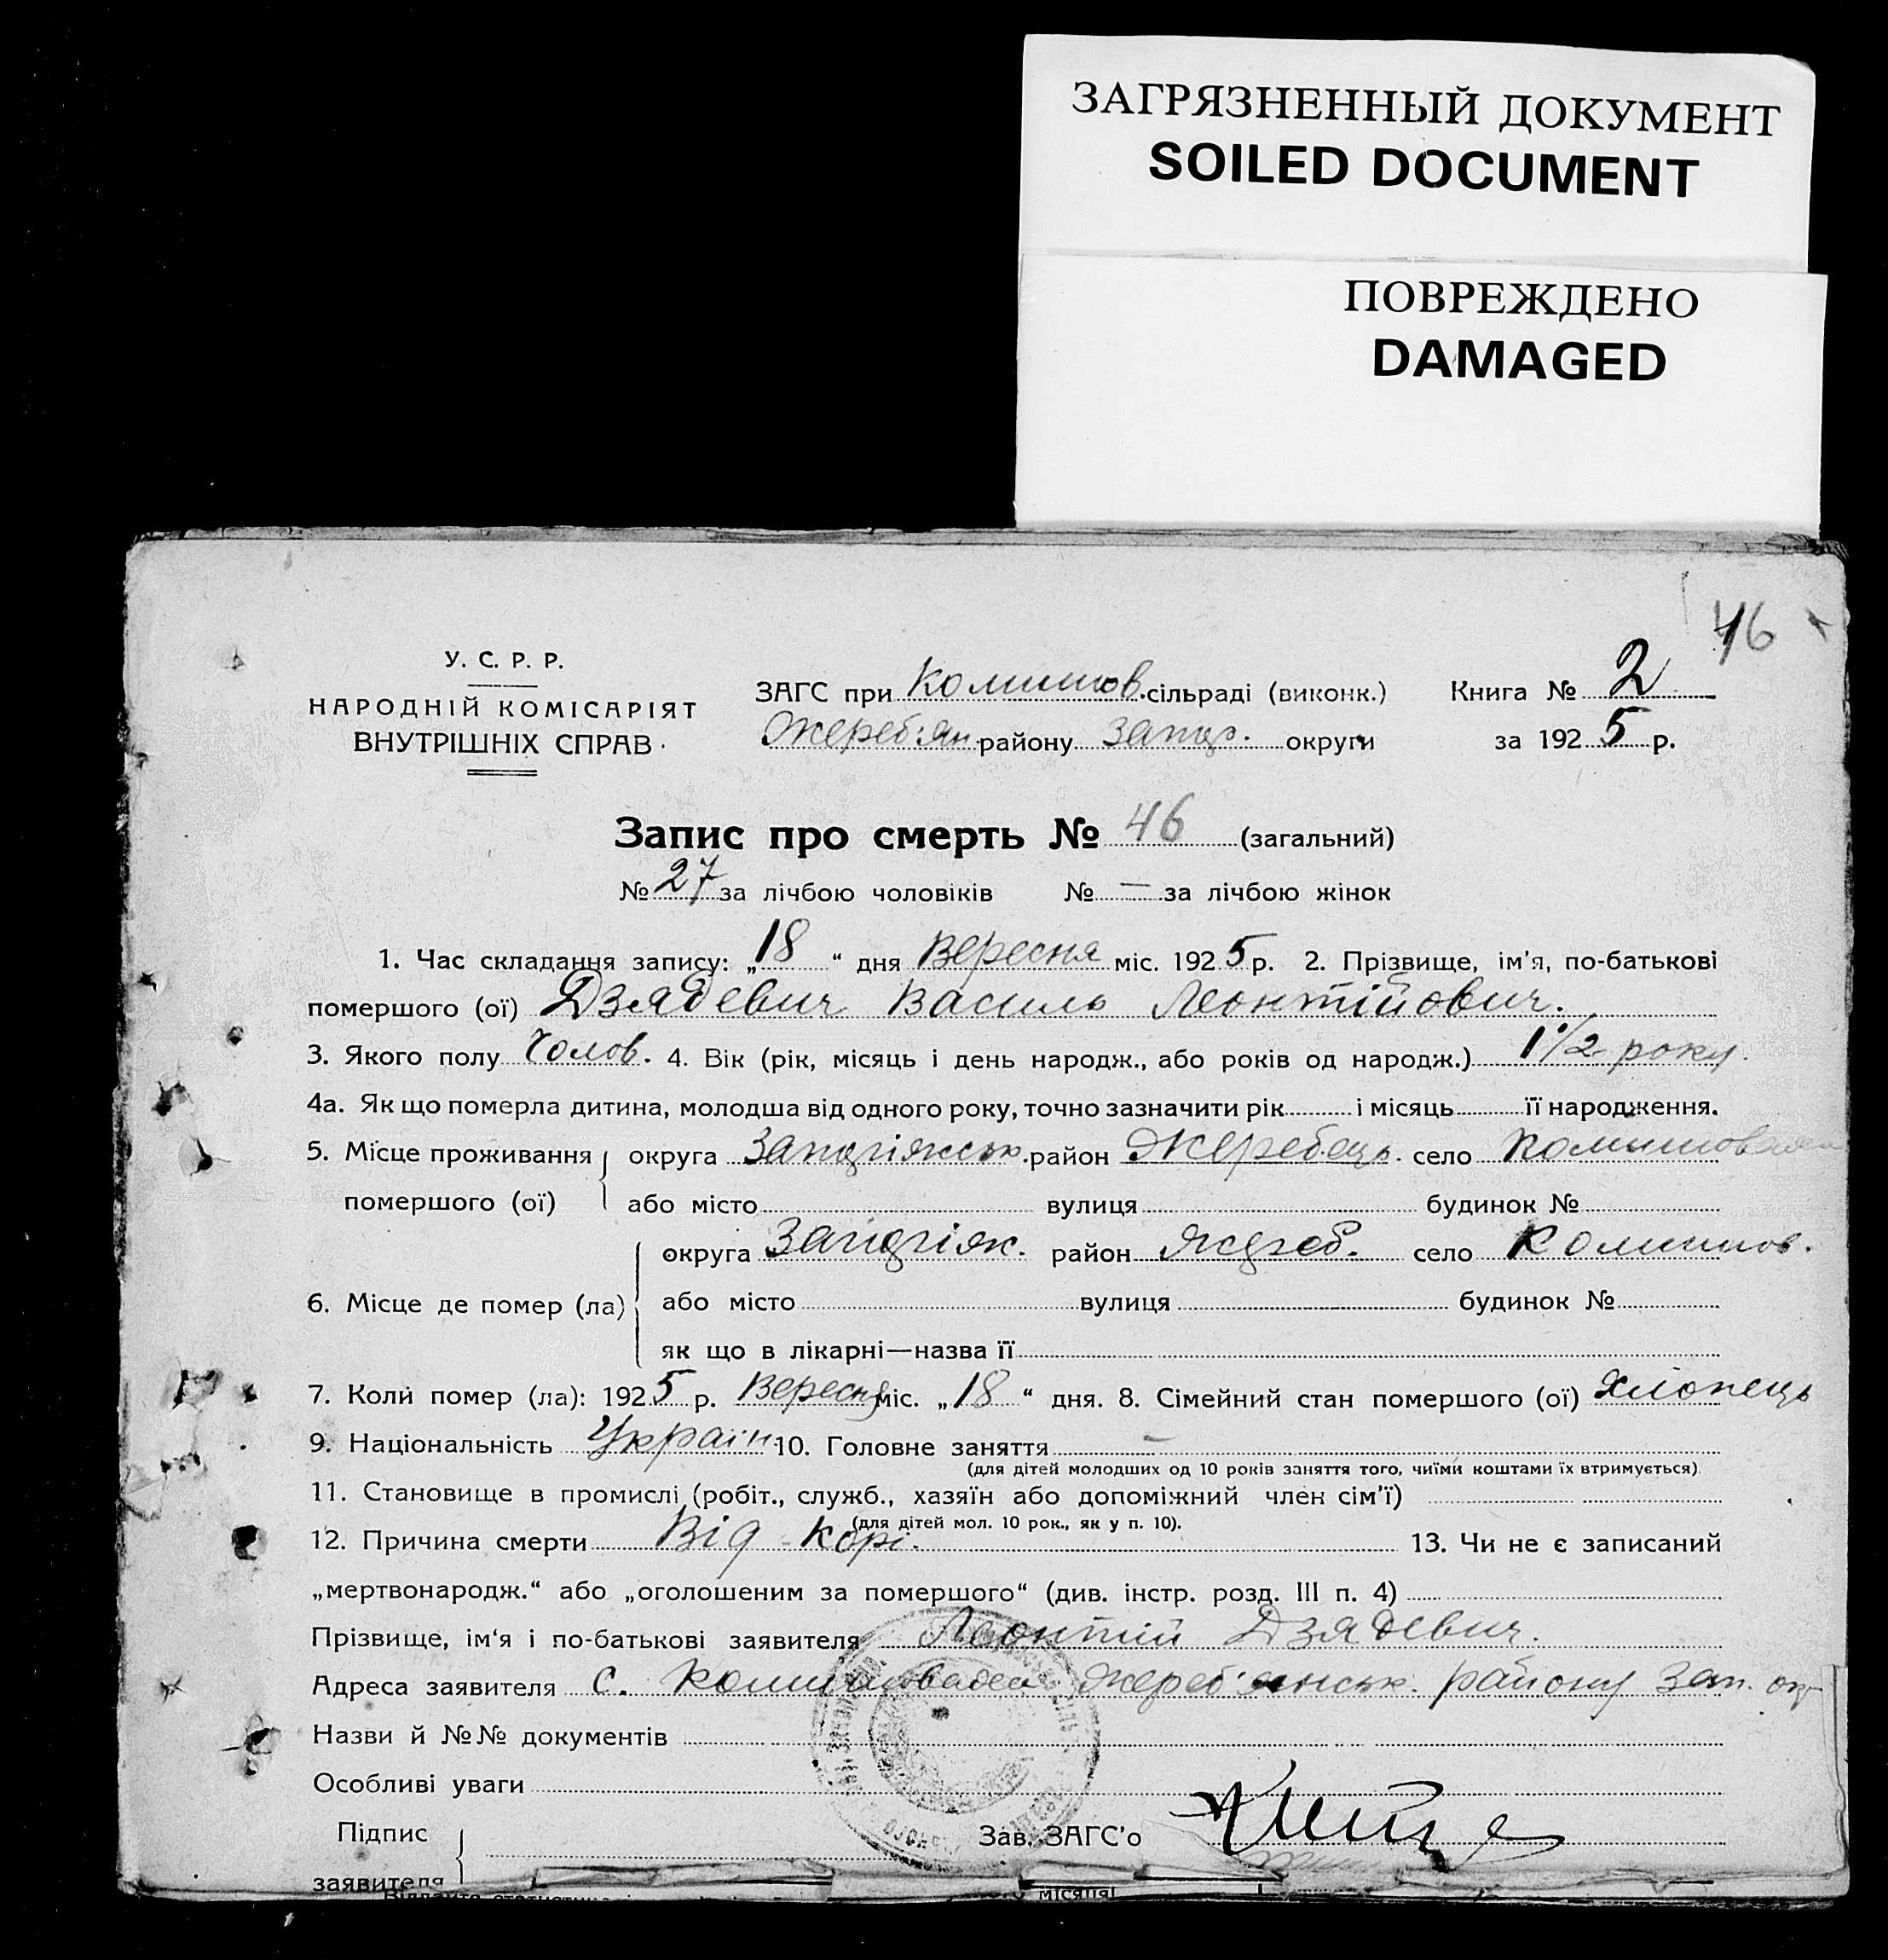 ЗАГРЯЗНЕННЫЙ ДОКУМЕНТ
SOILED DOCUMENT
ПОВРЕЖДЕНО
DAMAGED
46
У. С. Р. Р.
НАРОДНІЙ КОМІСАРІЯТ
ВНУТРІШНІХ СПРАВ
ЗАГС при Комишов. сільраді (виконк.) Книга № 2
Жереб'ян. району Запор. округи за 1925 р.
Запис про смерть № 46 (загальний)
№ 27 за лічбою чоловіків № — за лічбою жінок
1. Час складання запису: „18“ дня Вересня міс. 1925 р. 2. Прізвище, ім'я, по-батькові
помершого (ої) Дзядевич Василь Леонтійович.
3. Якого полу Чолов. 4. Вік (рік, місяць і день народж., або років од народж.) 1 1/2 року.
4а. Як що померла дитина, молодша від одного року, точно зазначити рік і місяць її народження.
5. Місце проживання округа Запоріжськ. район Жеребець. село Комишоваха
помершого (ої) або місто вулиця будинок №
округа Запоріж. район Жереб. село Комишов.
6. Місце де помер (ла) або місто вулиця будинок №
як що в лікарні—назва її
7. Коли помер (ла): 1925 р. Вересня міс. „18“ дня. 8. Сімейний стан помершого (ої) Хлопець
9. Національність Україн. 10. Головне заняття —
(для дітей молодших од 10 років заняття того, чиїми коштами їх втримується).
11. Становище в промислі (робіт., служб., хазяїн або допоміжний член сім'ї)
(для дітей мол. 10 рок., як у п. 10).
12. Причина смерти Від корі. 13. Чи не є записаний
„мертвонародж.“ або „оголошеним за помершого“ (див. інстр. розд. III п. 4)
Прізвище, ім'я і по-батькові заявителя Леонтій Дзядевич.
Адреса заявителя с. Комишоваха Жереб'янськ. району Зап. окр
Назви й №№ документів
Особливі уваги
Підпис
заявителя
Зав. ЗАГС'о
місяця!